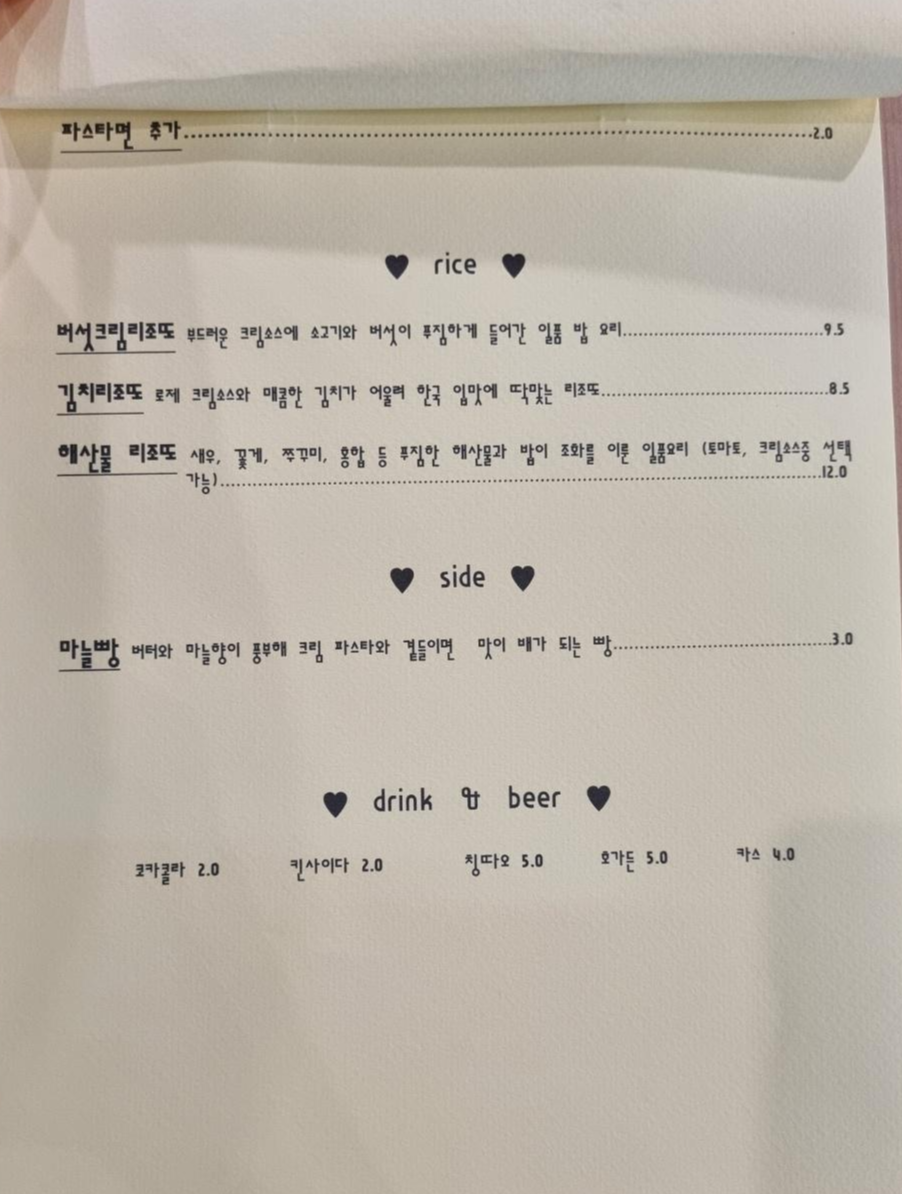 파스타면 추가 2.0
♥ rice ♥
버섯크림리조또 부드러운 크림소스에 소고기와 버섯이 푸짐하게 들어간 일품 밥 요리 9.5
김치리조또 로제 크림소스와 매콤한 김치가 어울려 한국 입맛에 딱맞는 리조또 8.5
해산물 리조또 새우, 꽃게, 쭈꾸미, 홍합 등 푸짐한 해산물과 밥이 조화를 이룬 일품요리 (토마토, 크림소스중 선택
가능) 12.0
♥ side ♥
마늘빵 버터와 마늘향이 풍부해 크림 파스타와 곁들이면 맛이 배가 되는 빵 3.0
♥ drink & beer ♥
코카콜라 2.0 킨사이다 2.0 칭따오 5.0 호가든 5.0 카스 4.0